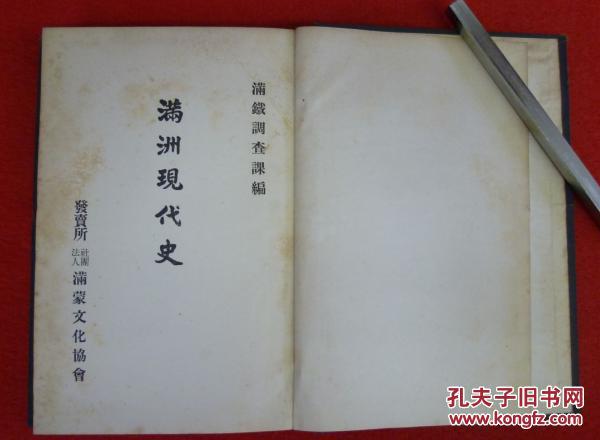 滿鐵調査課編
滿洲現代史
發賣所 社團法人 滿蒙文化協會
孔夫子旧书网